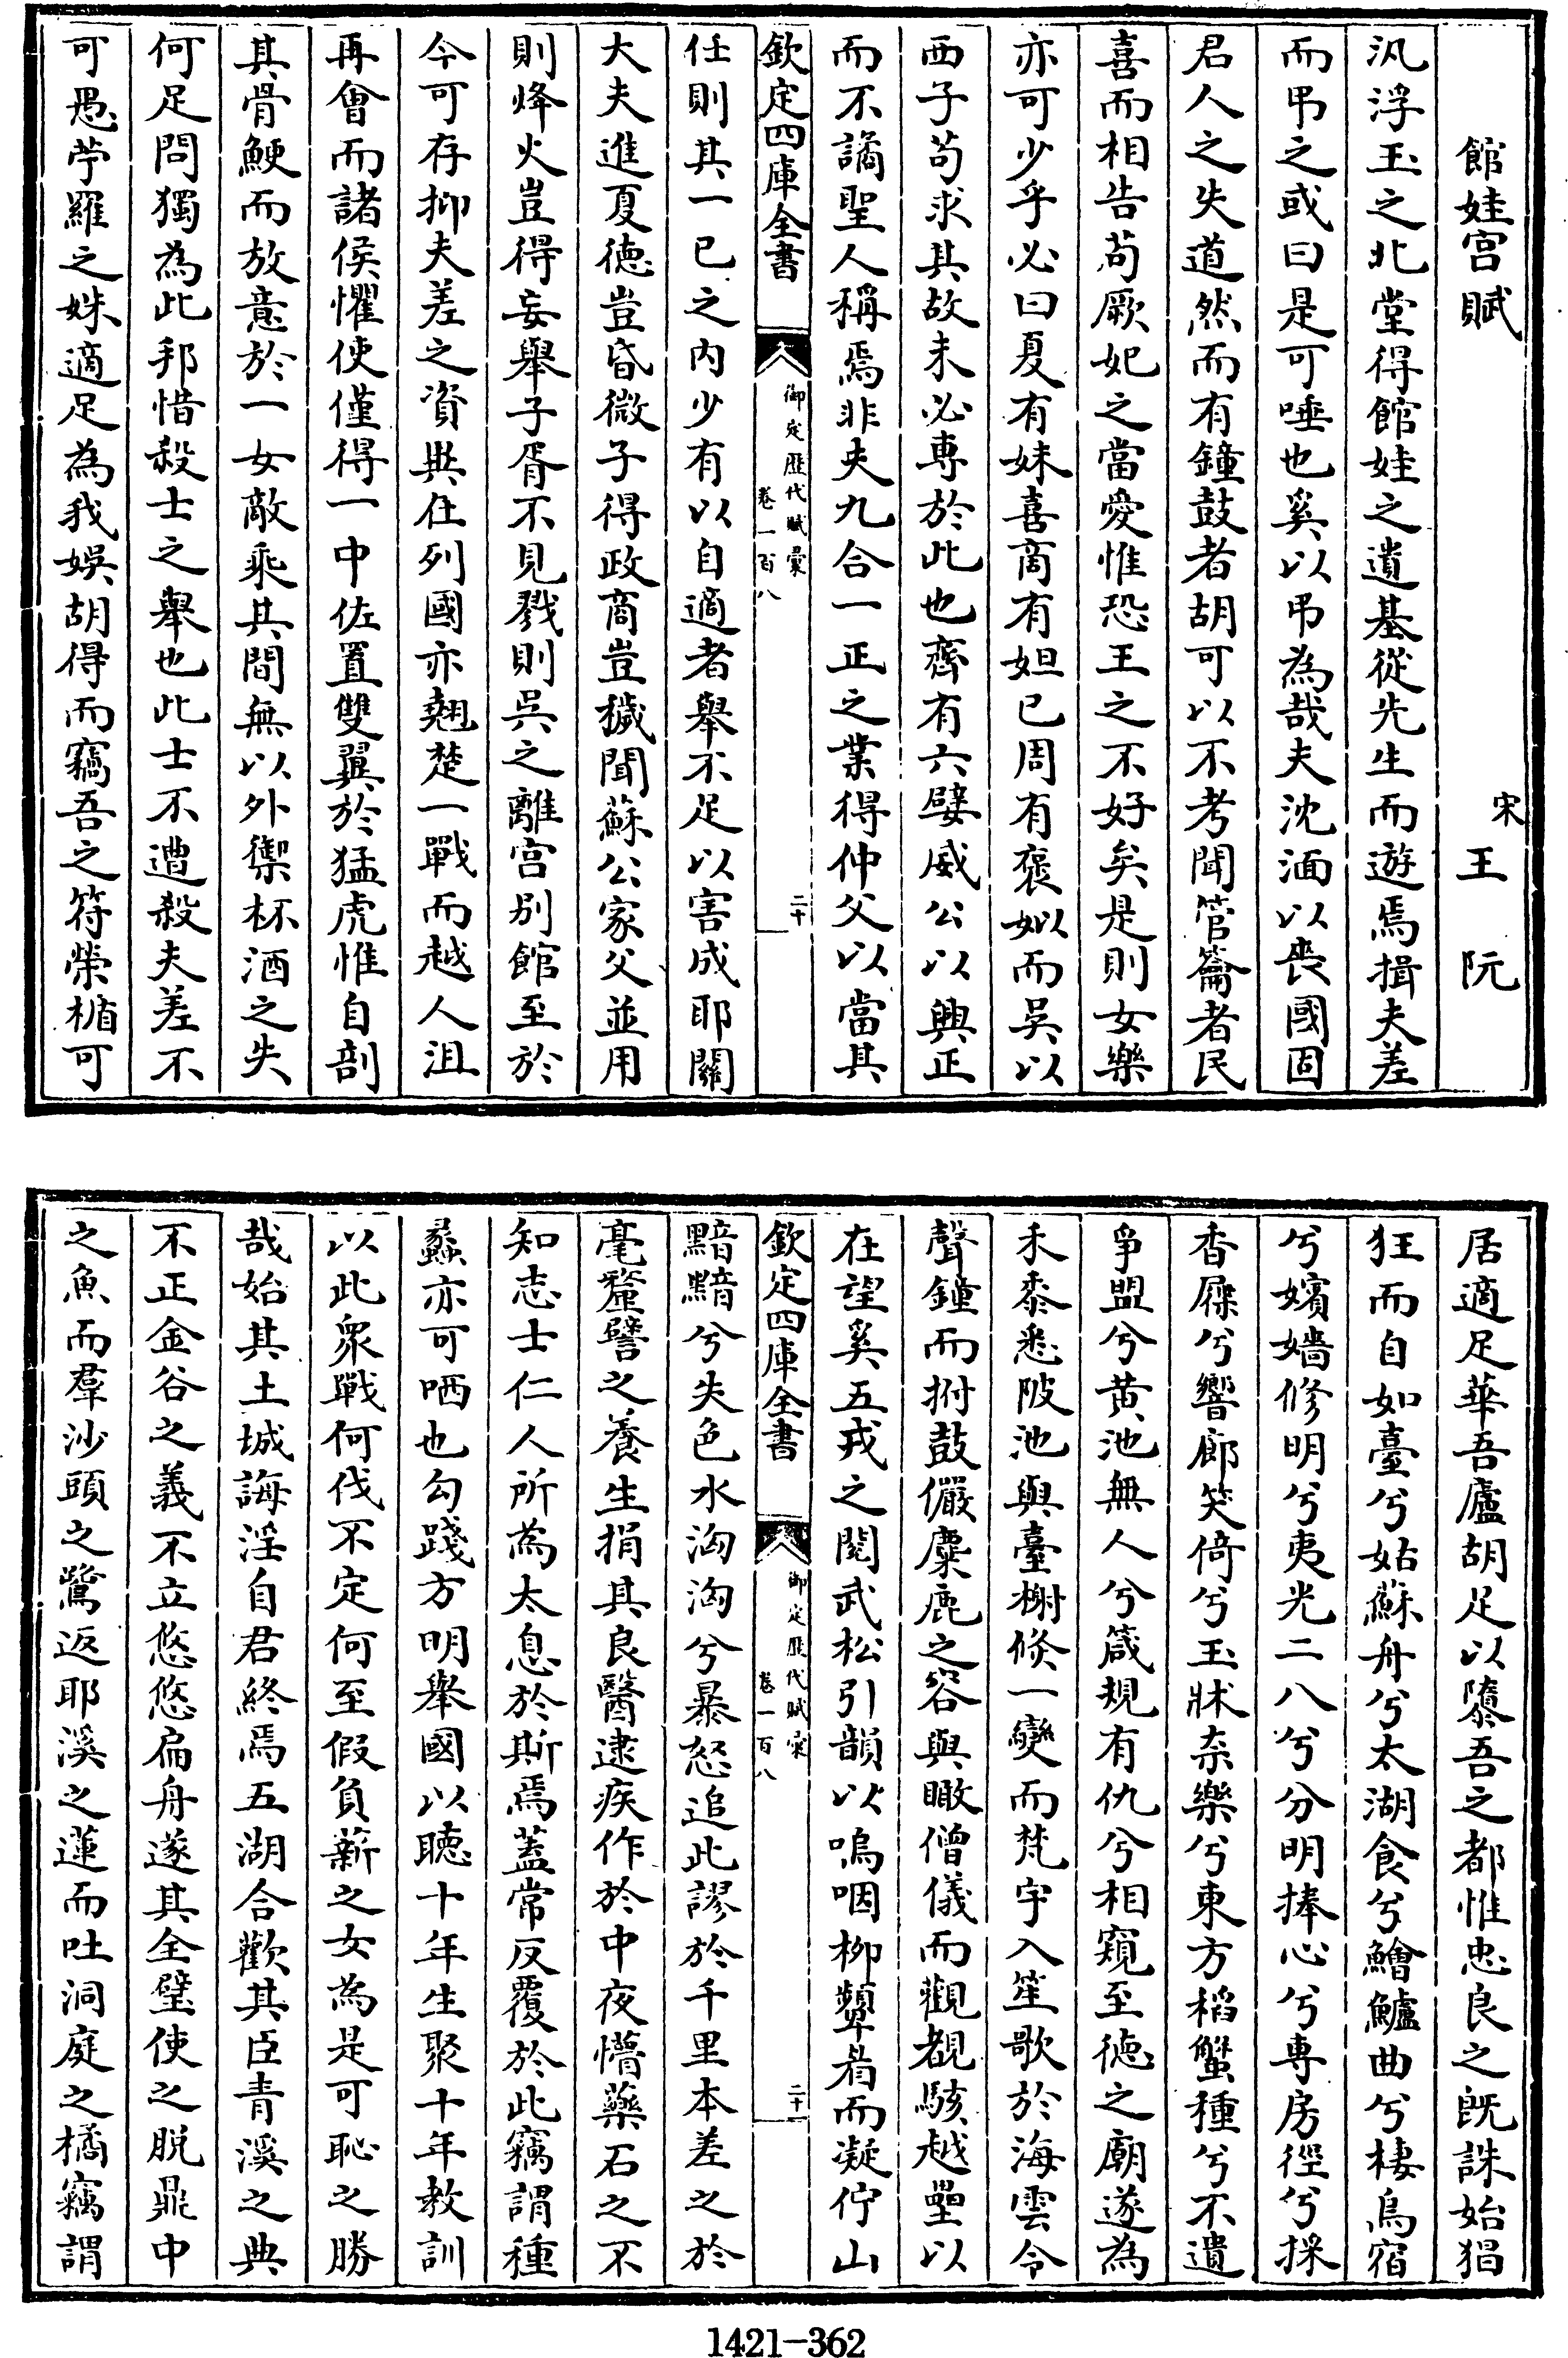 館娃宫賦
宋王阮
汎浮玉之北堂得館娃之遺基從先生而遊焉揖夫差
而弔之或曰是可唾也奚以弔為哉夫沈湎以喪國固
君人之失道然而有鐘鼓者胡可以不考聞管籥者民
喜而相告苟厥妃之當愛惟恐王之不好矣是則女樂
亦可少乎必曰夏有妹喜商有妲已周有褒姒而吳以
西子苟求其故未必專於此也齊有六嬖威公以興正
而不譎聖人稱焉非夫九合一正之業得仲父以當其
欽定四庫全書
御定歷代賦彙
卷一百八
二十
任則其一已之内少有以自適者舉不足以害成耶關
大夫進夏德豈昏微子得政商豈穢聞蘇公家父並用
則烽火豈得妄舉子胥不見戮則吳之離宫别館至於
今可存抑夫差之資與在列國亦翹楚一戰而越人沮
再會而諸侯懼使僅得一中佐置雙翼於猛虎惟自剖
其骨鯁而放意於一女敵乘其間無以外禦杯酒之失
何足問獨為此邦惜殺士之舉也此士不遭殺夫差不
可愚苧羅之姝適足為我娛胡得而竊吾之符榮楯可
居適足華吾廬胡足以隳吾之都惟忠良之既誅始猖
狂而自如臺兮姑蘇舟兮太湖食兮鱠鱸曲兮棲烏宿
兮嬪嬙修明兮夷光二八兮分明捧心兮專房徑兮採
香屧兮響廊笑倚兮玉牀柰樂兮東方稻蟹種兮不遺
爭盟兮黄池無人兮箴規有仇兮相窺至德之廟遂為
禾黍悉陂池與臺榭倏一變而梵宇入笙歌於海雲令
聲鐘而拊鼓儼麋鹿之容與瞰僧儀而觀覩駭越壘以
在望奚五戎之閲武松引韻以嗚咽栁顰眉而凝佇山
欽定四庫全書
御定歷代賦彙
卷一百八
二十一
黯黯兮失色水洶洶兮暴怒追此謬於千里本差之於
毫釐譬之養生捐其良醫逮疾作於中夜懵藥石之不
知志士仁人所為太息於斯焉蓋常反覆於此竊謂種
蠡亦可哂也勾踐方明舉國以聽十年生聚十年教訓
以此衆戰何伐不定何至假負薪之女為是可恥之勝
哉始其土城誨淫自君終焉五湖合歡其臣青溪之典
不正金谷之義不立悠悠扁舟遂其全璧使之脱鼎中
之魚而羣沙頭之鷺返耶溪之蓮而吐洞庭之橘竊謂
1421-362